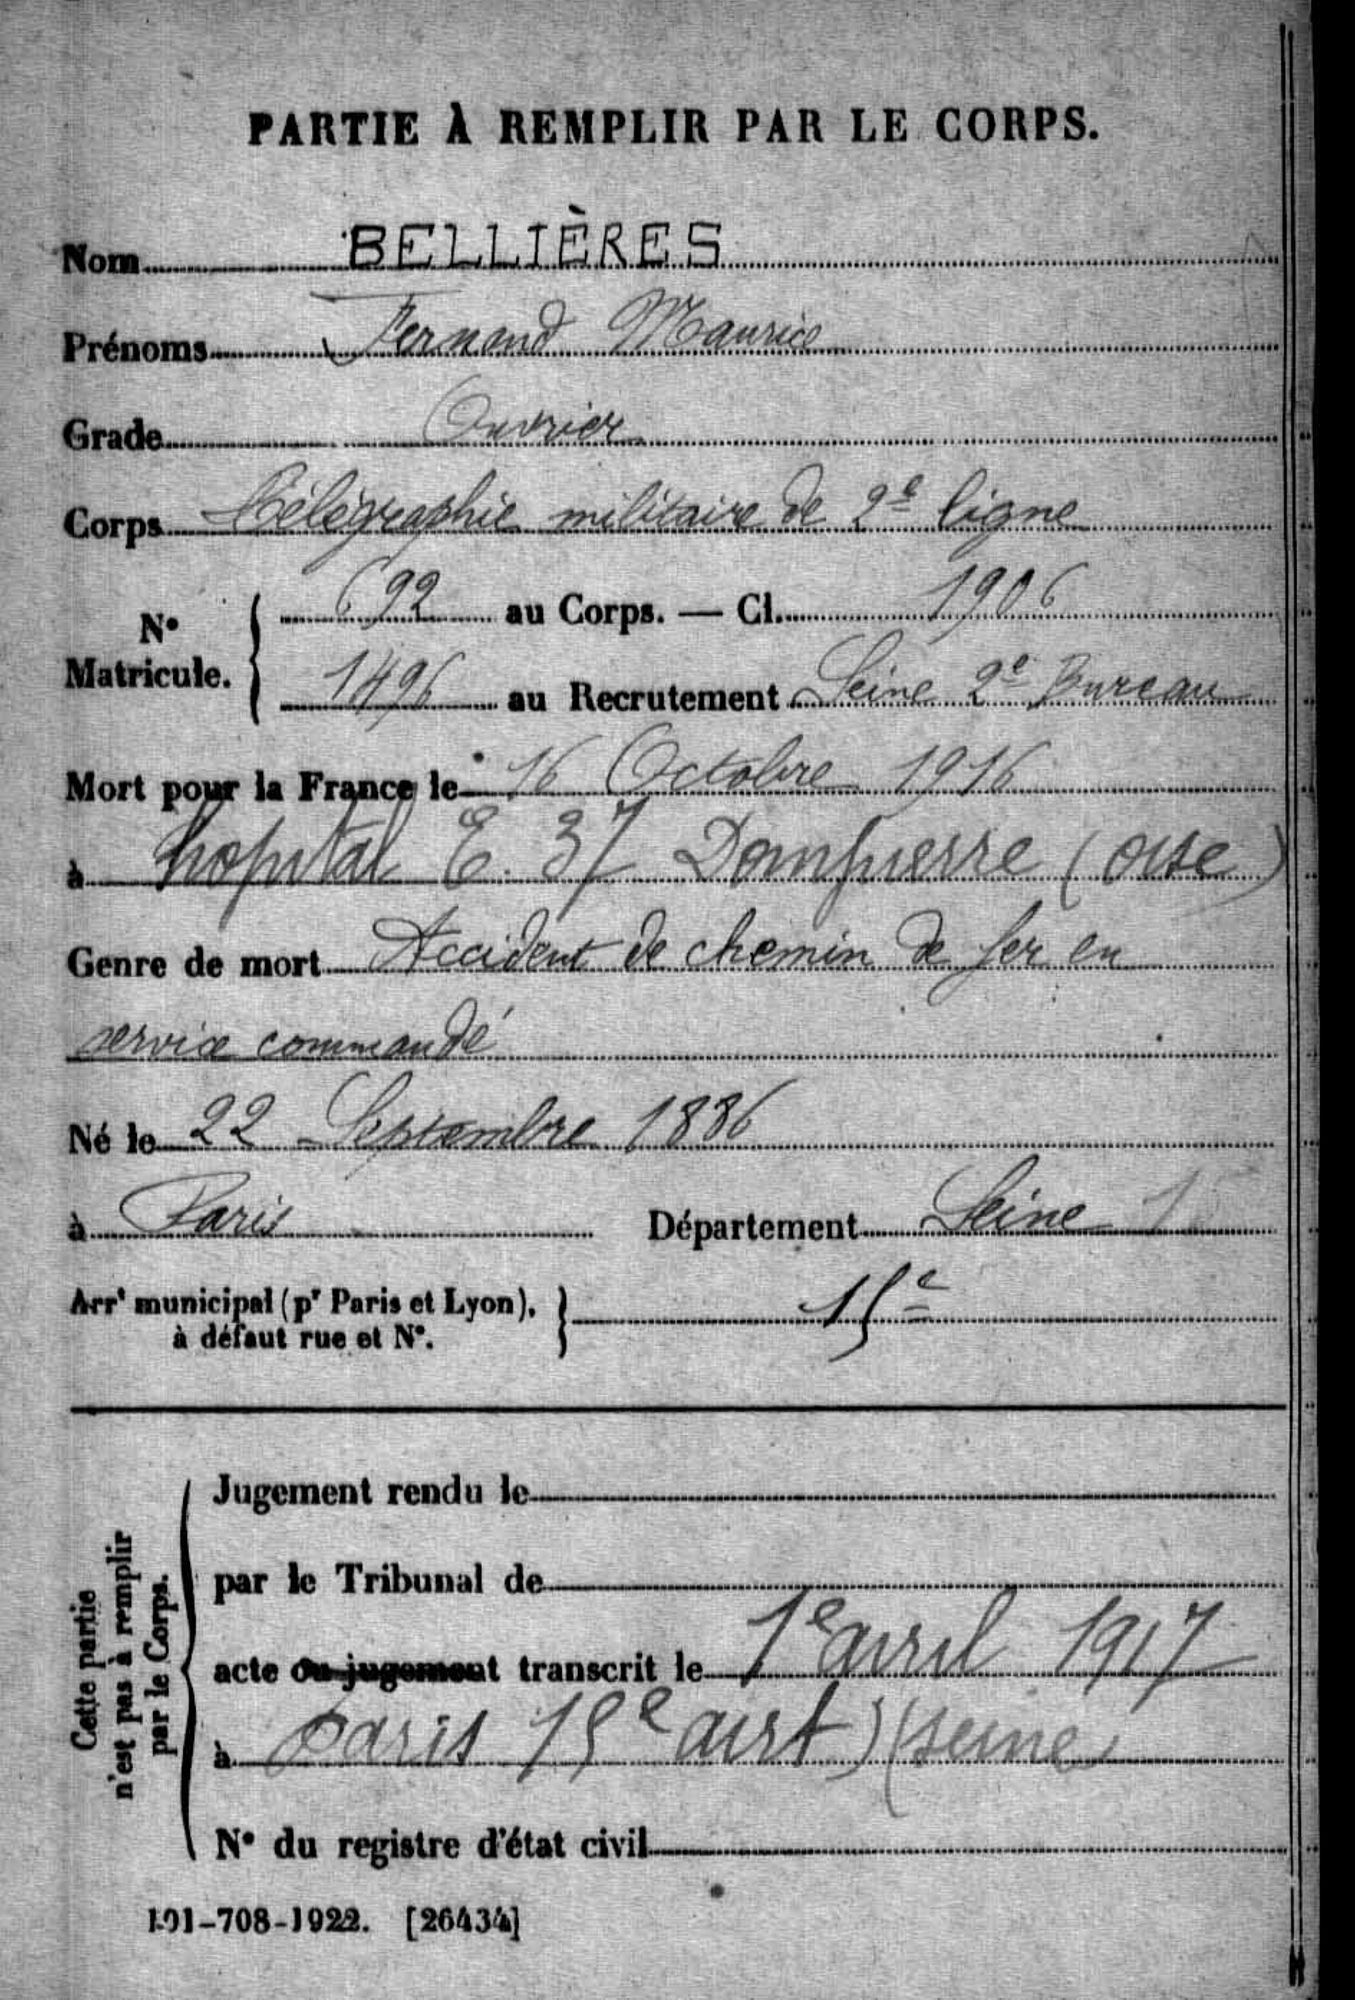 PARTIE À REMPLIR PAR LE CORPS.
Nom BELLIÈRES
Prénoms Fernand Maurice
Grade Ouvrier
Corps Télégraphie militaire de 2e ligne
N° Matricule. { 692 au Corps. — Cl. 1906
1496 au Recrutement Seine 2e Bureau
Mort pour la France le 16 Octobre 1916
à hopital E. 37 Dompierre (oise)
Genre de mort Accident de chemin de fer en
service commandé
Né le 22 Septembre 1886
à Paris Département Seine
Arrt municipal (pr Paris et Lyon), à défaut rue et N°. } 15e
Cette partie n'est pas à remplir par le Corps.
Jugement rendu le
par le Tribunal de
acte ou jugement transcrit le 1e avril 1917
à Paris 15e arrt) (seine
N° du registre d'état civil
101-708-1922. [26434]